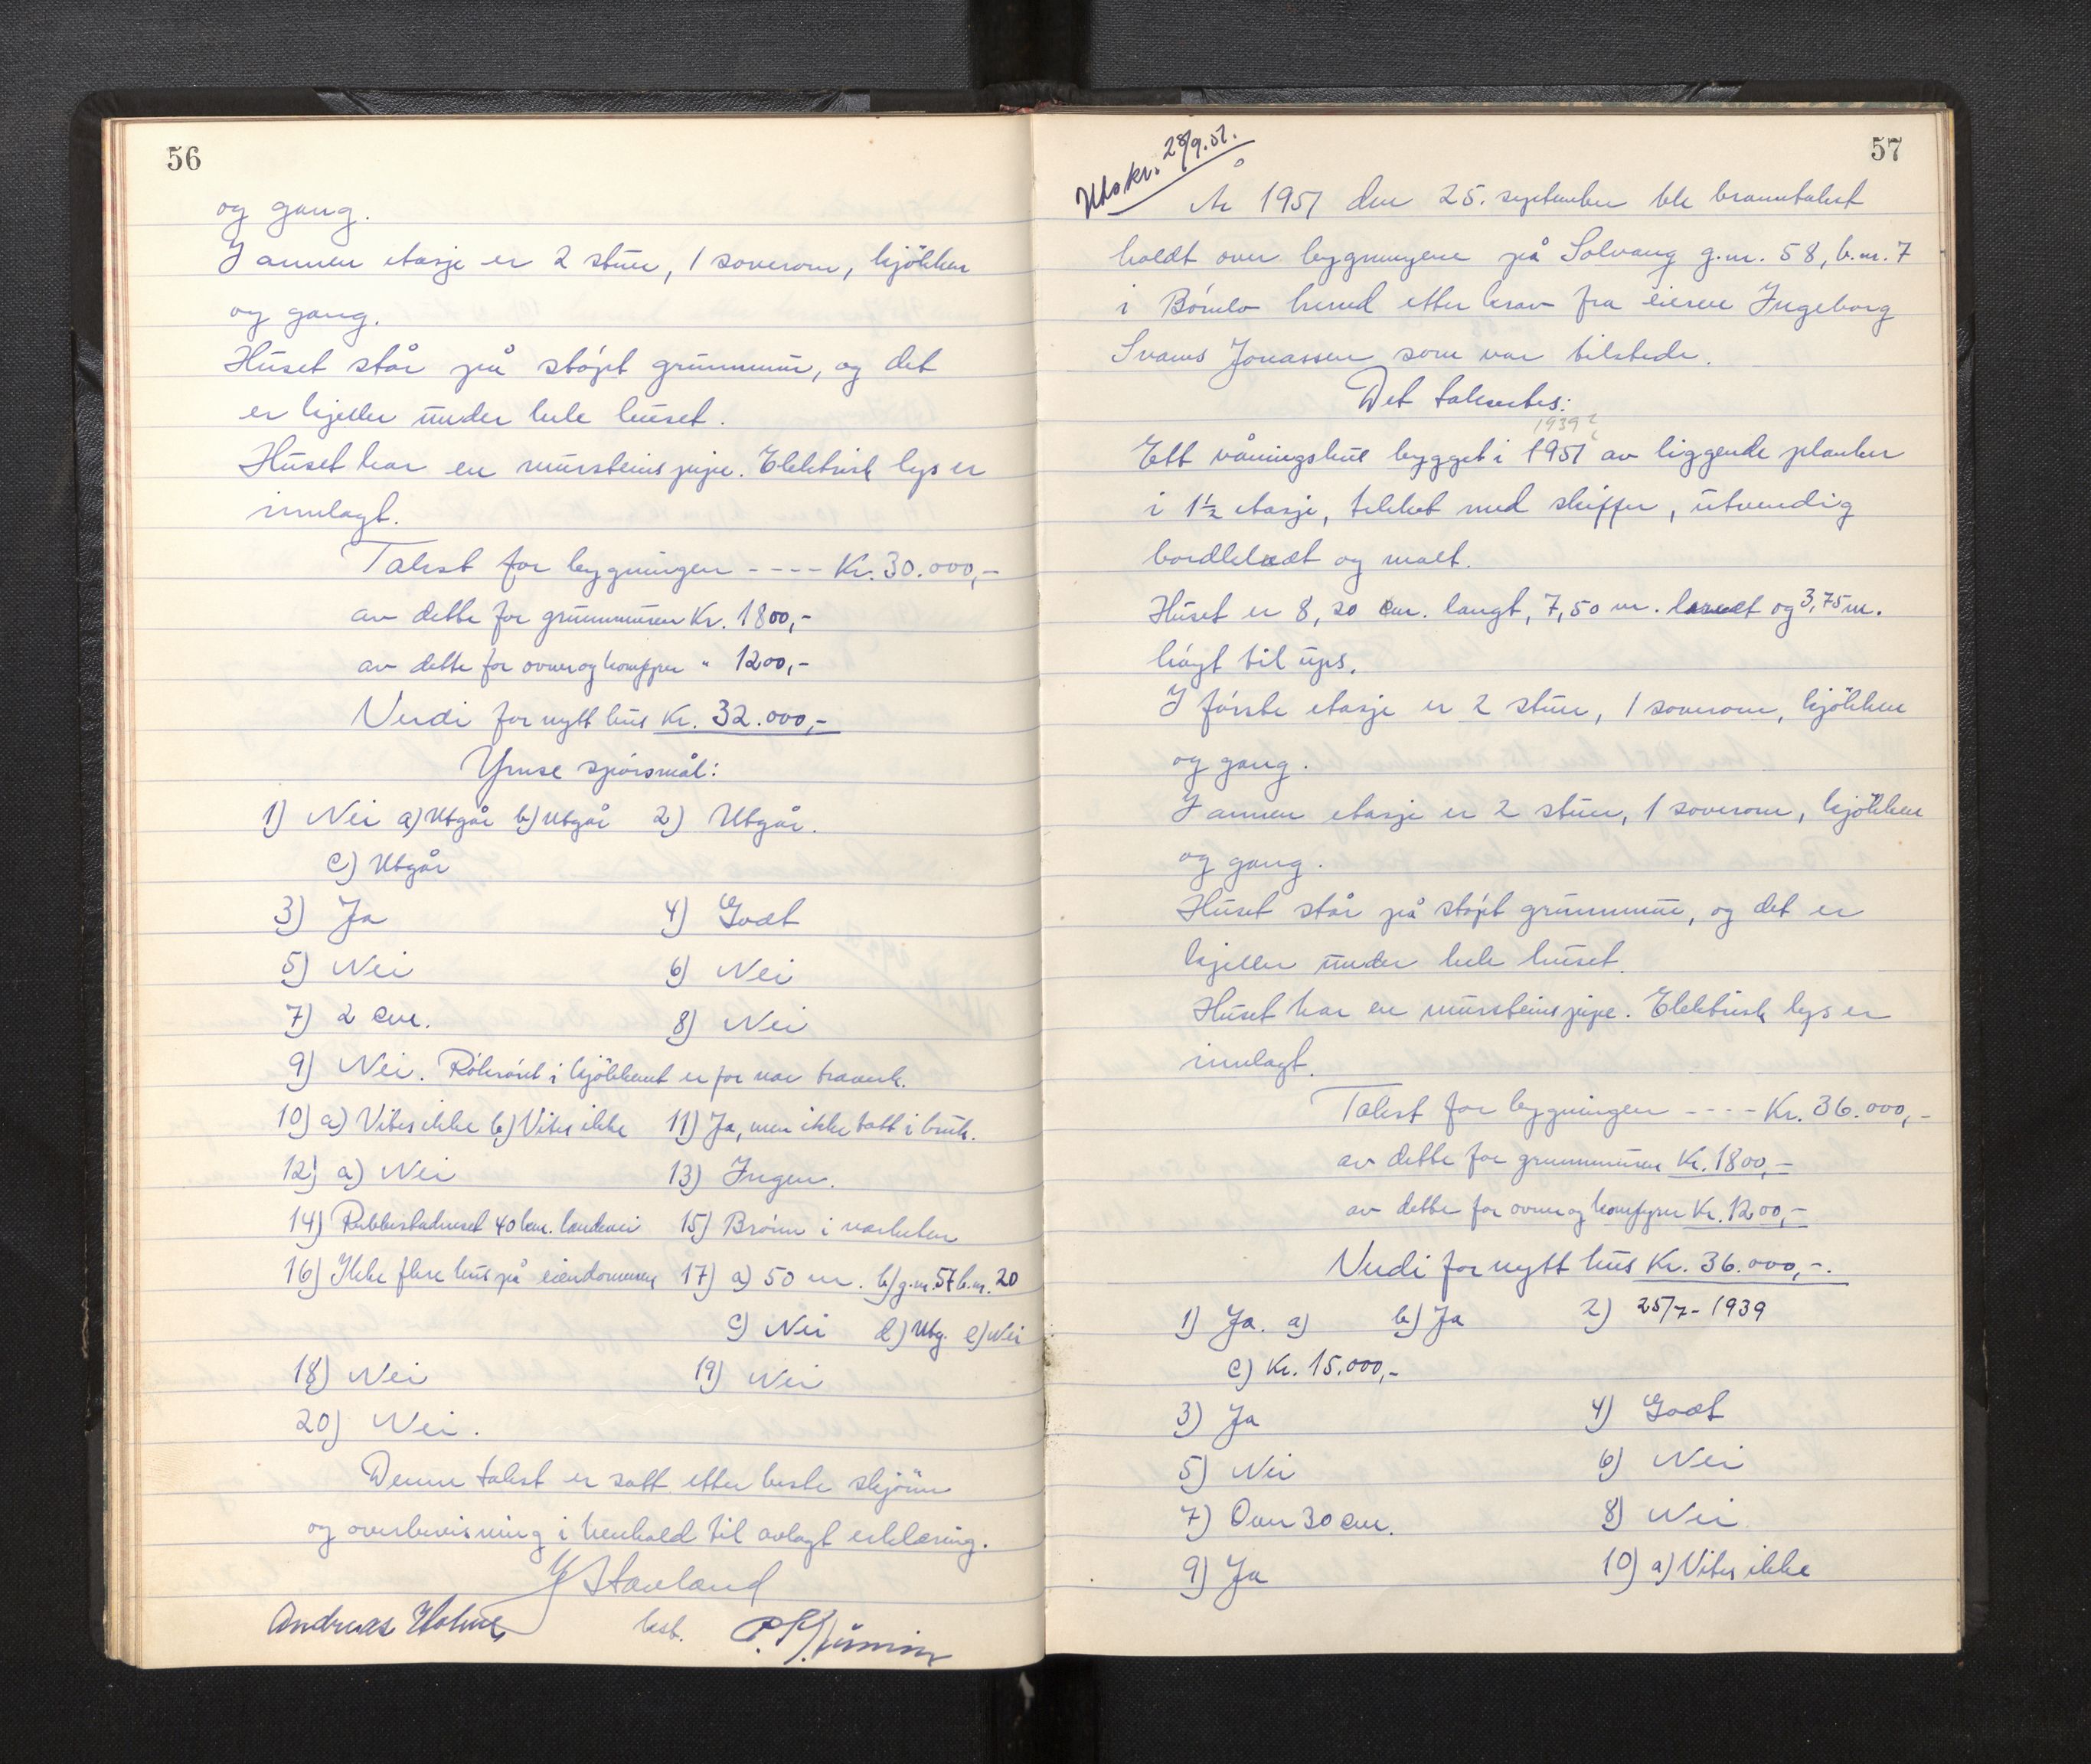 56
og gang.
I annen etasje er 2 stuer, 1 soverom, kjökken
og gang.
Huset står på støpt grunnmur, og det
er kjeller under hele huset.
Huset har en mursteinspipe. Elektrisk lys er
innlagt.
Takst for bygningen ---- Kr. 30.000,-
av dette for grunnmuren Kr. 1800,-
av dette for ovner og komfyrer " 1200,-
Verdi for nytt hus Kr. 32.000,-
Ymse spörsmål:
1) Nei a) Utgår b) Utgår 2) Utgår.
c) Utgår
3) Ja 4) Godt
5) Nei 6) Nei
7) 2 cm. 8) Nei
9) Nei. Rökröret i kjökkenet er for nær traverk.
10) a) Vites ikke b) Vites ikke 11) Ja, men ikke tatt i bruk.
12) a) Nei 13) Ingen.
14) Rubbestadneset 40 km. landevei 15) Brönn i nærheten
16) Ikke flere hus på eiendommen 17) a) 50 m. b) g.nr. 57 b.nr. 20
c) Nei d) Utg. e) Nei
18) Nei 19) Nei
20) Nei.
Denne takst er satt etter beste skjönn
og overbevisning i henhold til avlagt erklæring.
Stavland
Andreas Holme lesb.
57
Utskr. 28/9.51.
År 1951 den 25. september ble branntakst
holdt over bygningene på Solvang g.nr. 58, b.nr. 7
i Bömlo herred etter krav fra eieren Ingeborg
Svanes Jonassen som var tilstede.
Det takseres:
1939?
Ett våningshus bygget i 1951 av liggende planker
i 1½ etasje, tekket med skiffer, utvendig
bordkledt og malt.
Huset er 8,20 cm. langt, 7,50 m. bredt og 3,75 m.
högt til ups.
I förste etasje er 2 stuer, 1 soverom, kjökken
og gang.
I annen etasje er 2 stuer, 1 soverom, kjökken
og gang.
Huset står på støpt grunnmur, og det er
kjeller under hele huset.
Huset har en mursteinspipe. Elektrisk lys er
innlagt.
Takst for bygningen ---- Kr. 36.000,-
av dette for grunnmuren Kr. 1800,-
av dette for ovner og komfyrer Kr. 1200,-
Verdi for nytt hus Kr. 36.000,-.
1) Ja. a) b) Ja 2) 25/7-1939
c) Kr. 15.000,-
3) Ja 4) Godt
5) Nei 6) Nei
7) Over 30 cm. 8) Nei
9) Ja 10) a) Vites ikke